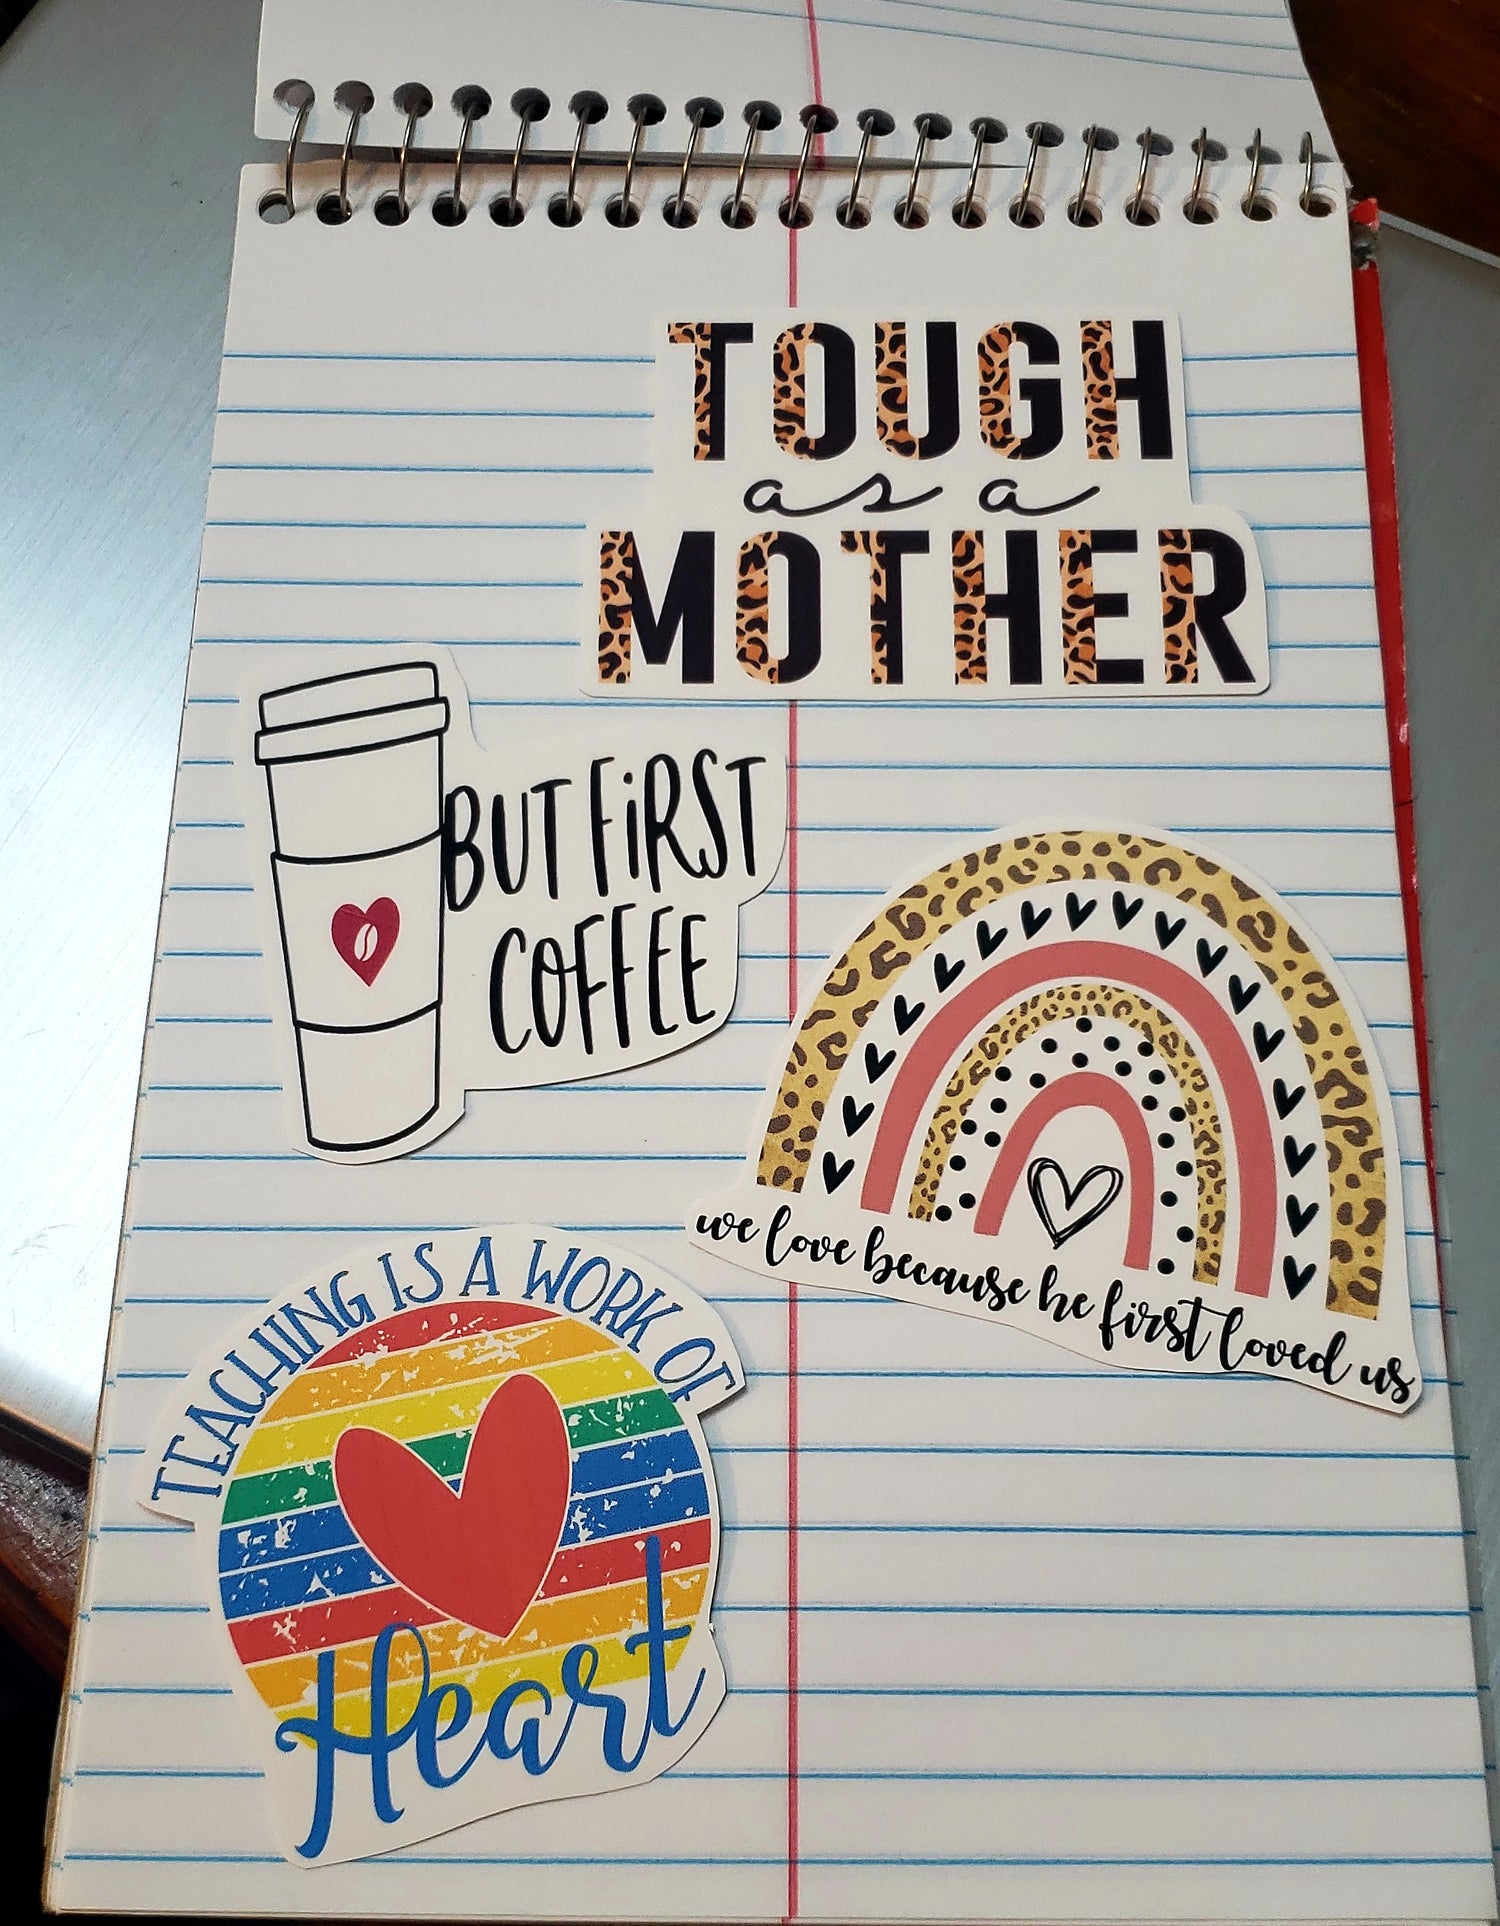 TOUGH
as a
MOTHER
BUT FiRST
COFFEE
we love because he first loved us
TEACHING IS A WORK OF
Heart